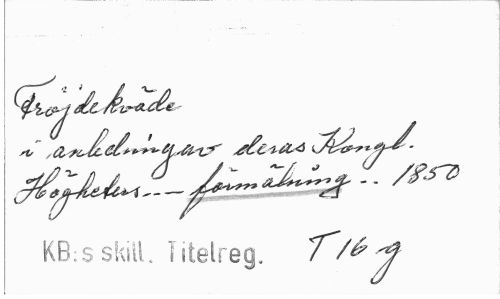 Fröjdekväde
i anledning av deras Kongl.
Högheters --- förmälning .. 1850
KB:s skill. Titelreg. T 16 g